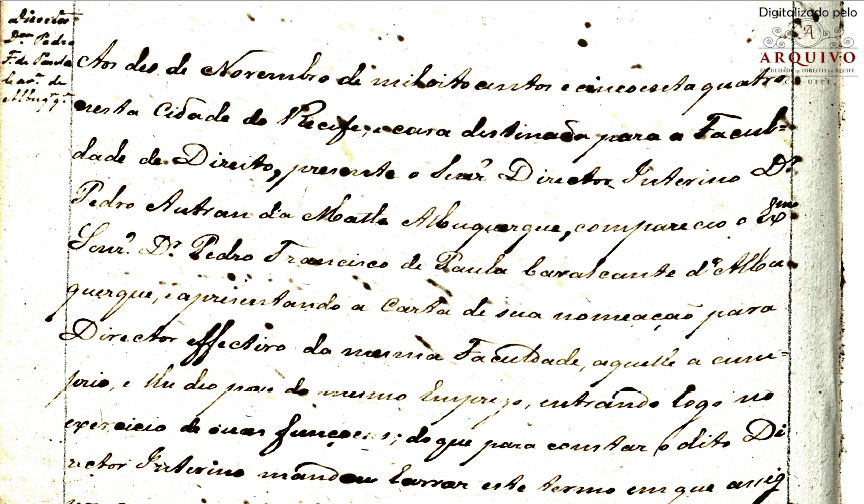 Digitalizado pelo
ARQUIVO
FACULDADE DE DIREITO DO RECIFE
UFPE
Director
Dor. Pedro
F. de Paula
Cavte. de
Albuqqe.
Aos dés de Novembro de mil oito centos e cincoenta quatro
nesta Cidade do Recife, e casa destinada para a Facul-
dade de Direito, presente o Senr. Director Interino Dr.
Pedro Autran da Matta Albuquerque, compareceo o Exmo
Senr. Dr. Pedro Francisco de Paula Cavalcante d'Albu
querque, e apresentando a Carta de sua nomeação para
Director effectivo da mesma Faculdade, aquelle a cum-
prio, e lhe deo posse do mesmo Emprego, entrando logo no
exercicio de suas funçoens; do que para constar o dito Di
rector Interino mandou lavrar este termo em que assig